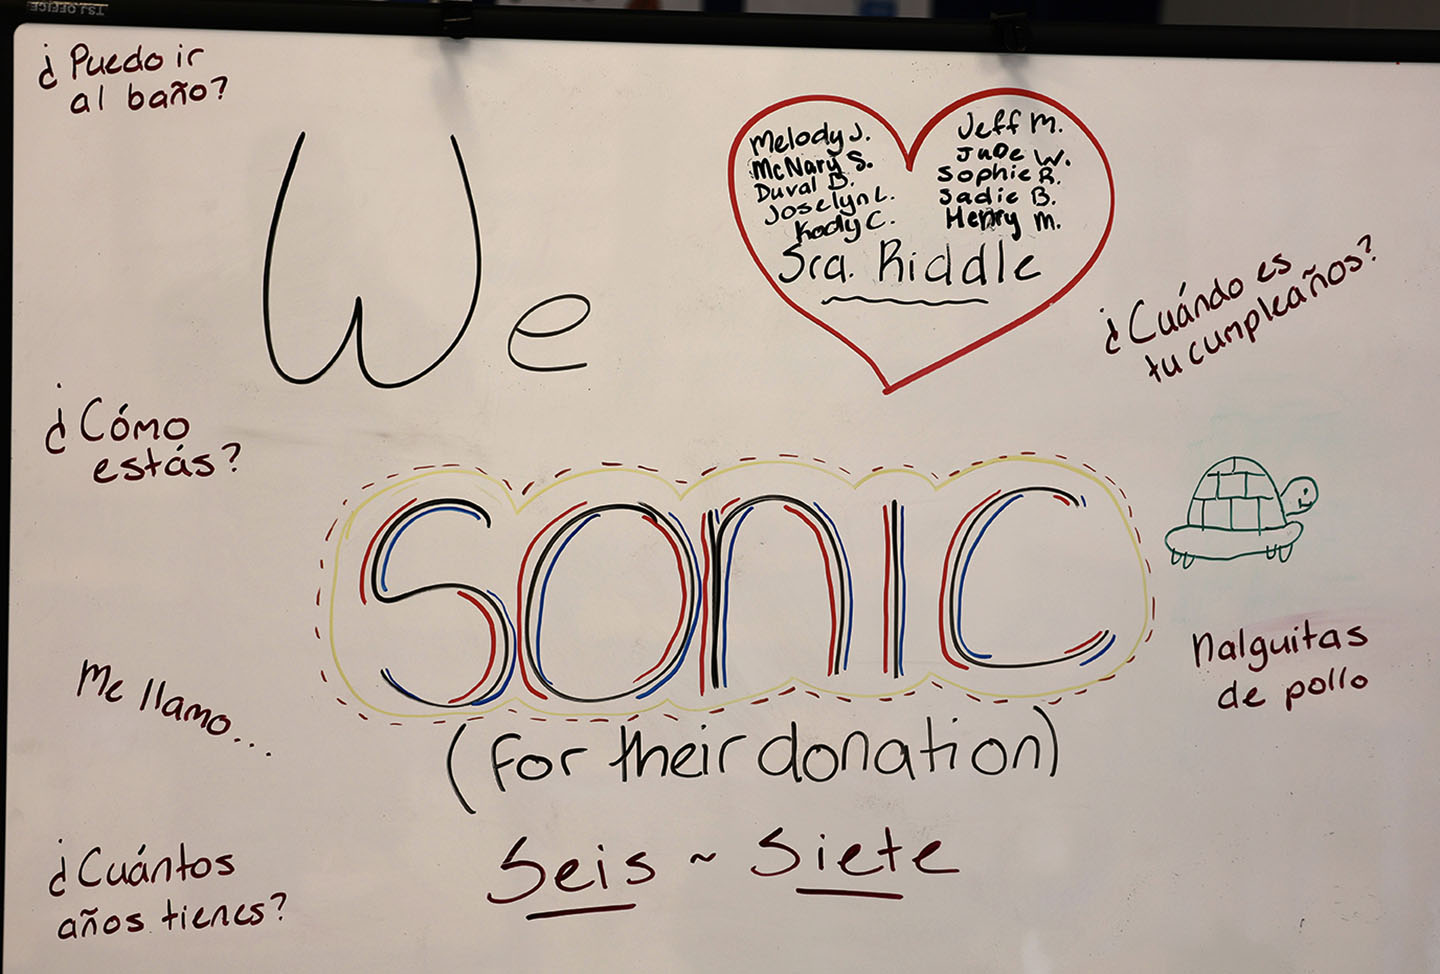 ¿Puedo ir
al baño?
We
Melody J.
McNary S.
Duval B.
Joselyn L.
Kady C.
Jeff M.
Jude W.
Sophie R.
Sadie B.
Henry M.
Sra. Riddle
¿Cuándo es
tu cumpleaños?
¿Cómo
estás?
SONIC
nalguitas
de pollo
Me llamo...
(for their donation)
Seis ~ Siete
¿Cuántos
años tienes?